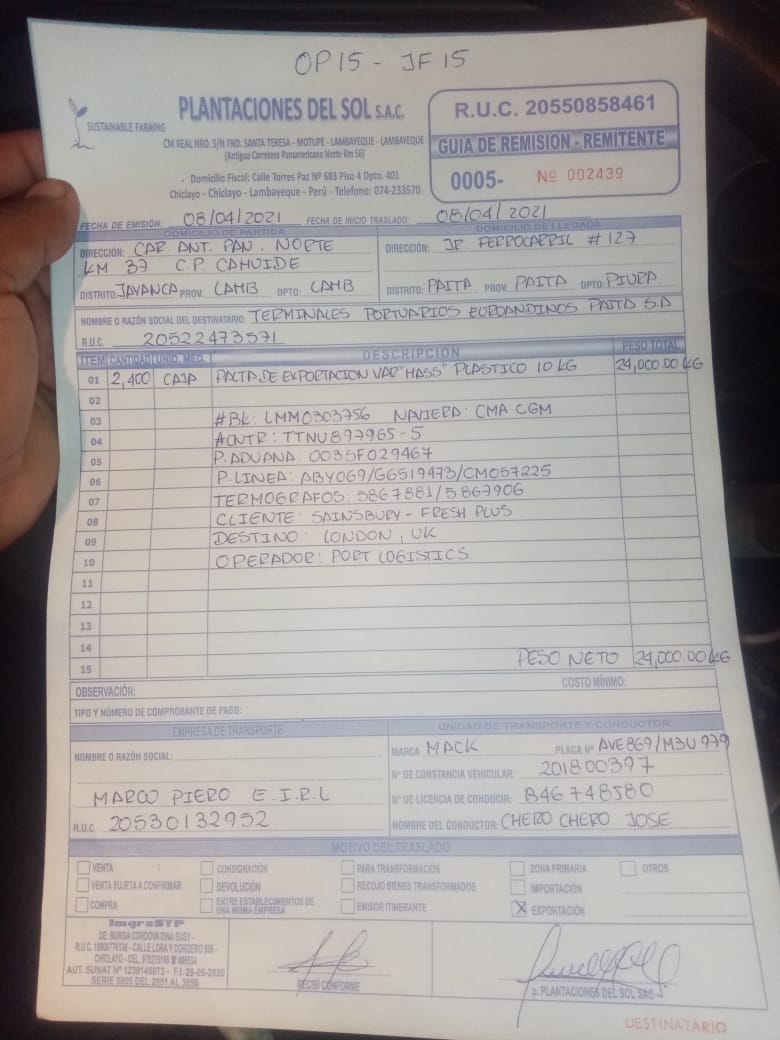 OP15 - JF15
SUSTAINABLE FARMING
PLANTACIONES DEL SOL S.A.C.
CM REAL NRO. S/N FND. SANTA TERESA - MOTUPE - LAMBAYEQUE - LAMBAYEQUE
(Antigua Carretera Panamericana Norte Km 56)
Domicilio Fiscal: Calle Torres Paz Nº 683 Piso 4 Dpto. 401
Chiclayo - Chiclayo - Lambayeque - Perú - Telefono: 074-233570
R.U.C. 20550858461
GUIA DE REMISION - REMITENTE
0005- Nº 002439
FECHA DE EMISIÓN: 08/04/2021 FECHA DE INICIO TRASLADO: 08/04/2021
DOMICILIO DE PARTIDA
DIRECCIÓN: CAR. ANT. PAN. NORTE
KM 37 C.P. CAHUIDE
DISTRITO: JAYANCA PROV. LAMB DPTO: LAMB
DOMICILIO DE LLEGADA
DIRECCIÓN: JR. FERROCARRIL # 127
DISTRITO: PAITA PROV. PAITA DPTO: PIURA
NOMBRE O RAZÓN SOCIAL DEL DESTINATARIO: TERMINALES PORTUARIOS EUROANDINOS PAITA S.A
R.U.C. 20522473571
ITEM CANTIDAD UNID. MED. DESCRIPCIÓN PESO TOTAL
01 2,400 CAJA PALTA DE EXPORTACION VAR "HASS" PLASTICO 10 KG 24,000.00 KG
02
03 #BK: LMM0303756 NAVIERA: CMA CGM
04 #CNTR: TTNU897965-5
05 P. ADUANA: 003SF029467
06 P. LINEA: ABY069/G6519473/CM057225
07 TERMOGRAFOS: 5867881/5867906
08 CLIENTE: SAINSBURY - FRESH PLUS
09 DESTINO: LONDON, UK
10 OPERADOR: PORT LOGISTICS
11
12
13
14 PESO NETO 24,000.00 KG
15
OBSERVACIÓN: COSTO MÍNIMO:
TIPO Y NÚMERO DE COMPROBANTE DE PAGO:
EMPRESA DE TRANSPORTE
NOMBRE O RAZÓN SOCIAL:
MARCO PIERO E.I.R.L
R.U.C. 20530132952
UNIDAD DE TRANSPORTE Y CONDUCTOR
MARCA MACK PLACA Nº AVE869/M3U979
Nº DE CONSTANCIA VEHICULAR: 201800397
Nº DE LICENCIA DE CONDUCIR: B46748580
NOMBRE DEL CONDUCTOR: CHERO CHERO JOSE
MOTIVO DEL TRASLADO
VENTA CONSIGNACIÓN PARA TRANSFORMACIÓN ZONA PRIMARIA OTROS
VENTA SUJETA A CONFIRMAR DEVOLUCIÓN RECOJO BIENES TRANSFORMADOS IMPORTACIÓN
COMPRA ENTRE ESTABLECIMIENTOS DE UNA MISMA EMPRESA EMISOR ITINERANTE X EXPORTACIÓN
ImgraSYP
DE: BURGA CORDOVA DINA SUSY -
CALLE LORA Y CORDERO 806 -
CHICLAYO - CEL.
AUT. SUNAT Nº 1239145073 - F.I. 29-05-2020
SERIE 0005 DEL 2051 AL 3050
RECIBÍ CONFORME
p. PLANTACIONES DEL SOL SAC
DESTINATARIO